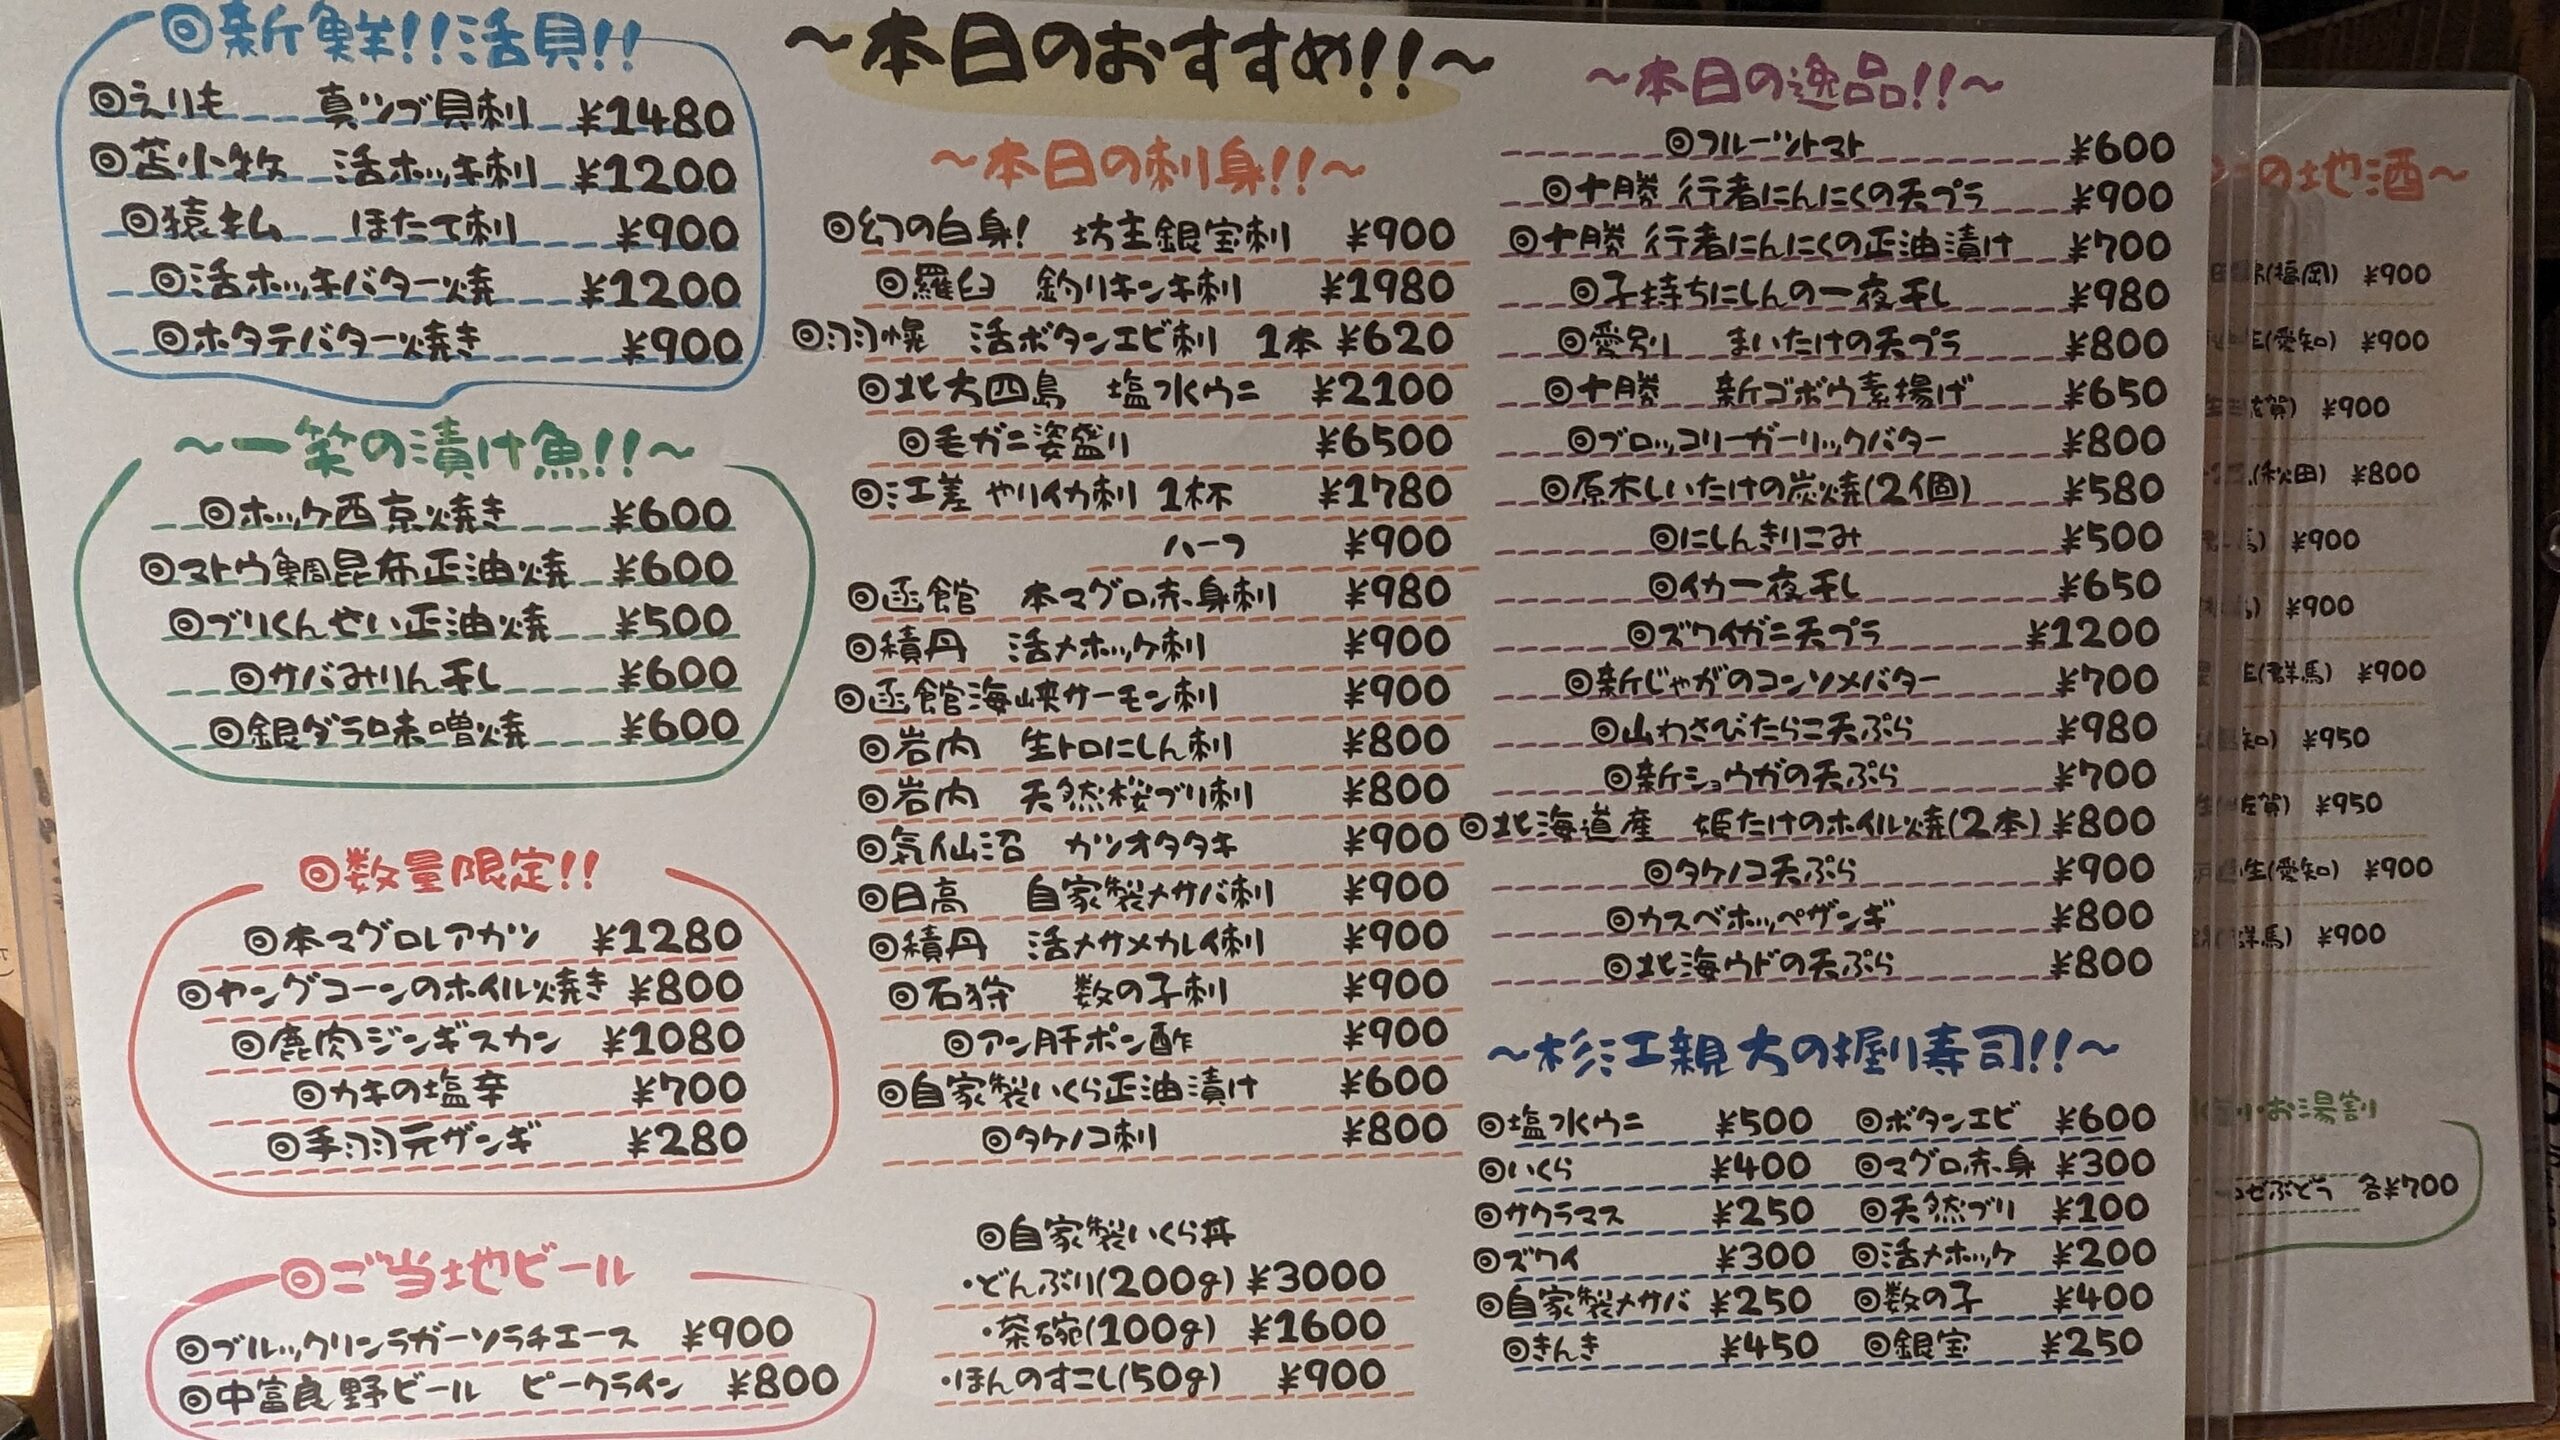 ◎新鮮!!活貝!!
◎えりも 真ツブ貝刺 ¥1480
◎苫小牧 活ホッキ刺 ¥1200
◎猿払 ほたて刺 ¥900
◎活ホッキバター焼 ¥1200
◎ホタテバター焼き ¥900
～一笑の漬け魚!!～
◎ホッケ西京焼き ¥600
◎マトウ鯛昆布正油焼 ¥600
◎ブリくんせい正油焼 ¥500
◎サバみりん干し ¥600
◎銀ダラ味噌焼 ¥600
◎数量限定!!
◎本マグロレアカツ ¥1280
◎ヤングコーンのホイル焼き ¥800
◎鹿肉ジンギスカン ¥1080
◎カキの塩辛 ¥700
◎手羽元ザンギ ¥280
◎ご当地ビール
◎ブルックリンラガーソラチエース ¥900
◎中富良野ビール ピークライン ¥800
～本日のおすすめ!!～
～本日の刺身!!～
◎幻の白身! 坊主銀宝刺 ¥900
◎羅臼 釣りキンキ刺 ¥1980
◎羽幌 活ボタンエビ刺 1本 ¥620
◎北大四島 塩水ウニ ¥2100
◎毛ガニ姿盛り ¥6500
◎江差 やりイカ刺 1杯 ¥1780
ハーフ ¥900
◎函館 本マグロ赤身刺 ¥980
◎積丹 活〆ホッケ刺 ¥900
◎函館海峡サーモン刺 ¥900
◎岩内 生トロにしん刺 ¥800
◎岩内 天然桜ブリ刺 ¥800
◎気仙沼 カツオタタキ ¥900
◎日高 自家製〆サバ刺 ¥900
◎積丹 活〆サメカレイ刺 ¥900
◎石狩 数の子刺 ¥900
◎アン肝ポン酢 ¥900
◎自家製いくら正油漬け ¥600
◎タケノコ刺 ¥800
◎自家製いくら丼
・どんぶり(200g) ¥3000
・茶碗(100g) ¥1600
・ほんのすこし(50g) ¥900
～本日の逸品!!～
◎フルーツトマト ¥600
◎十勝 行者にんにくの天プラ ¥900
◎十勝 行者にんにくの正油漬け ¥700
◎子持ちにしんの一夜干し ¥980
◎愛別 まいたけの天プラ ¥800
◎十勝 新ゴボウ素揚げ ¥650
◎ブロッコリーガーリックバター ¥800
◎原木しいたけの炭焼(2個) ¥580
◎にしんきりこみ ¥500
◎イカ一夜干し ¥650
◎ズワイガニ天プラ ¥1200
◎新じゃがのコンソメバター ¥700
◎山わさびたらこ天ぷら ¥980
◎新ショウガの天ぷら ¥700
◎北海道産 姫たけのホイル焼(2本) ¥800
◎タケノコ天ぷら ¥900
◎カスベホッペザンギ ¥800
◎北海ウドの天ぷら ¥800
～杉江親大の握り寿司!!～
◎塩水ウニ ¥500 ◎ボタンエビ ¥600
◎いくら ¥400 ◎マグロ赤身 ¥300
◎サクラマス ¥250 ◎天然ブリ ¥100
◎ズワイ ¥300 ◎活〆ホッケ ¥200
◎自家製〆サバ ¥250 ◎数の子 ¥400
◎きんき ¥450 ◎銀宝 ¥250
の地酒～
(福岡) ¥900
(愛知) ¥900
佐賀) ¥900
(秋田) ¥800
馬) ¥900
¥900
(群馬) ¥900
知) ¥950
佐賀) ¥950
生(愛知) ¥900
群馬) ¥900
お湯割
ぶどう 各¥700